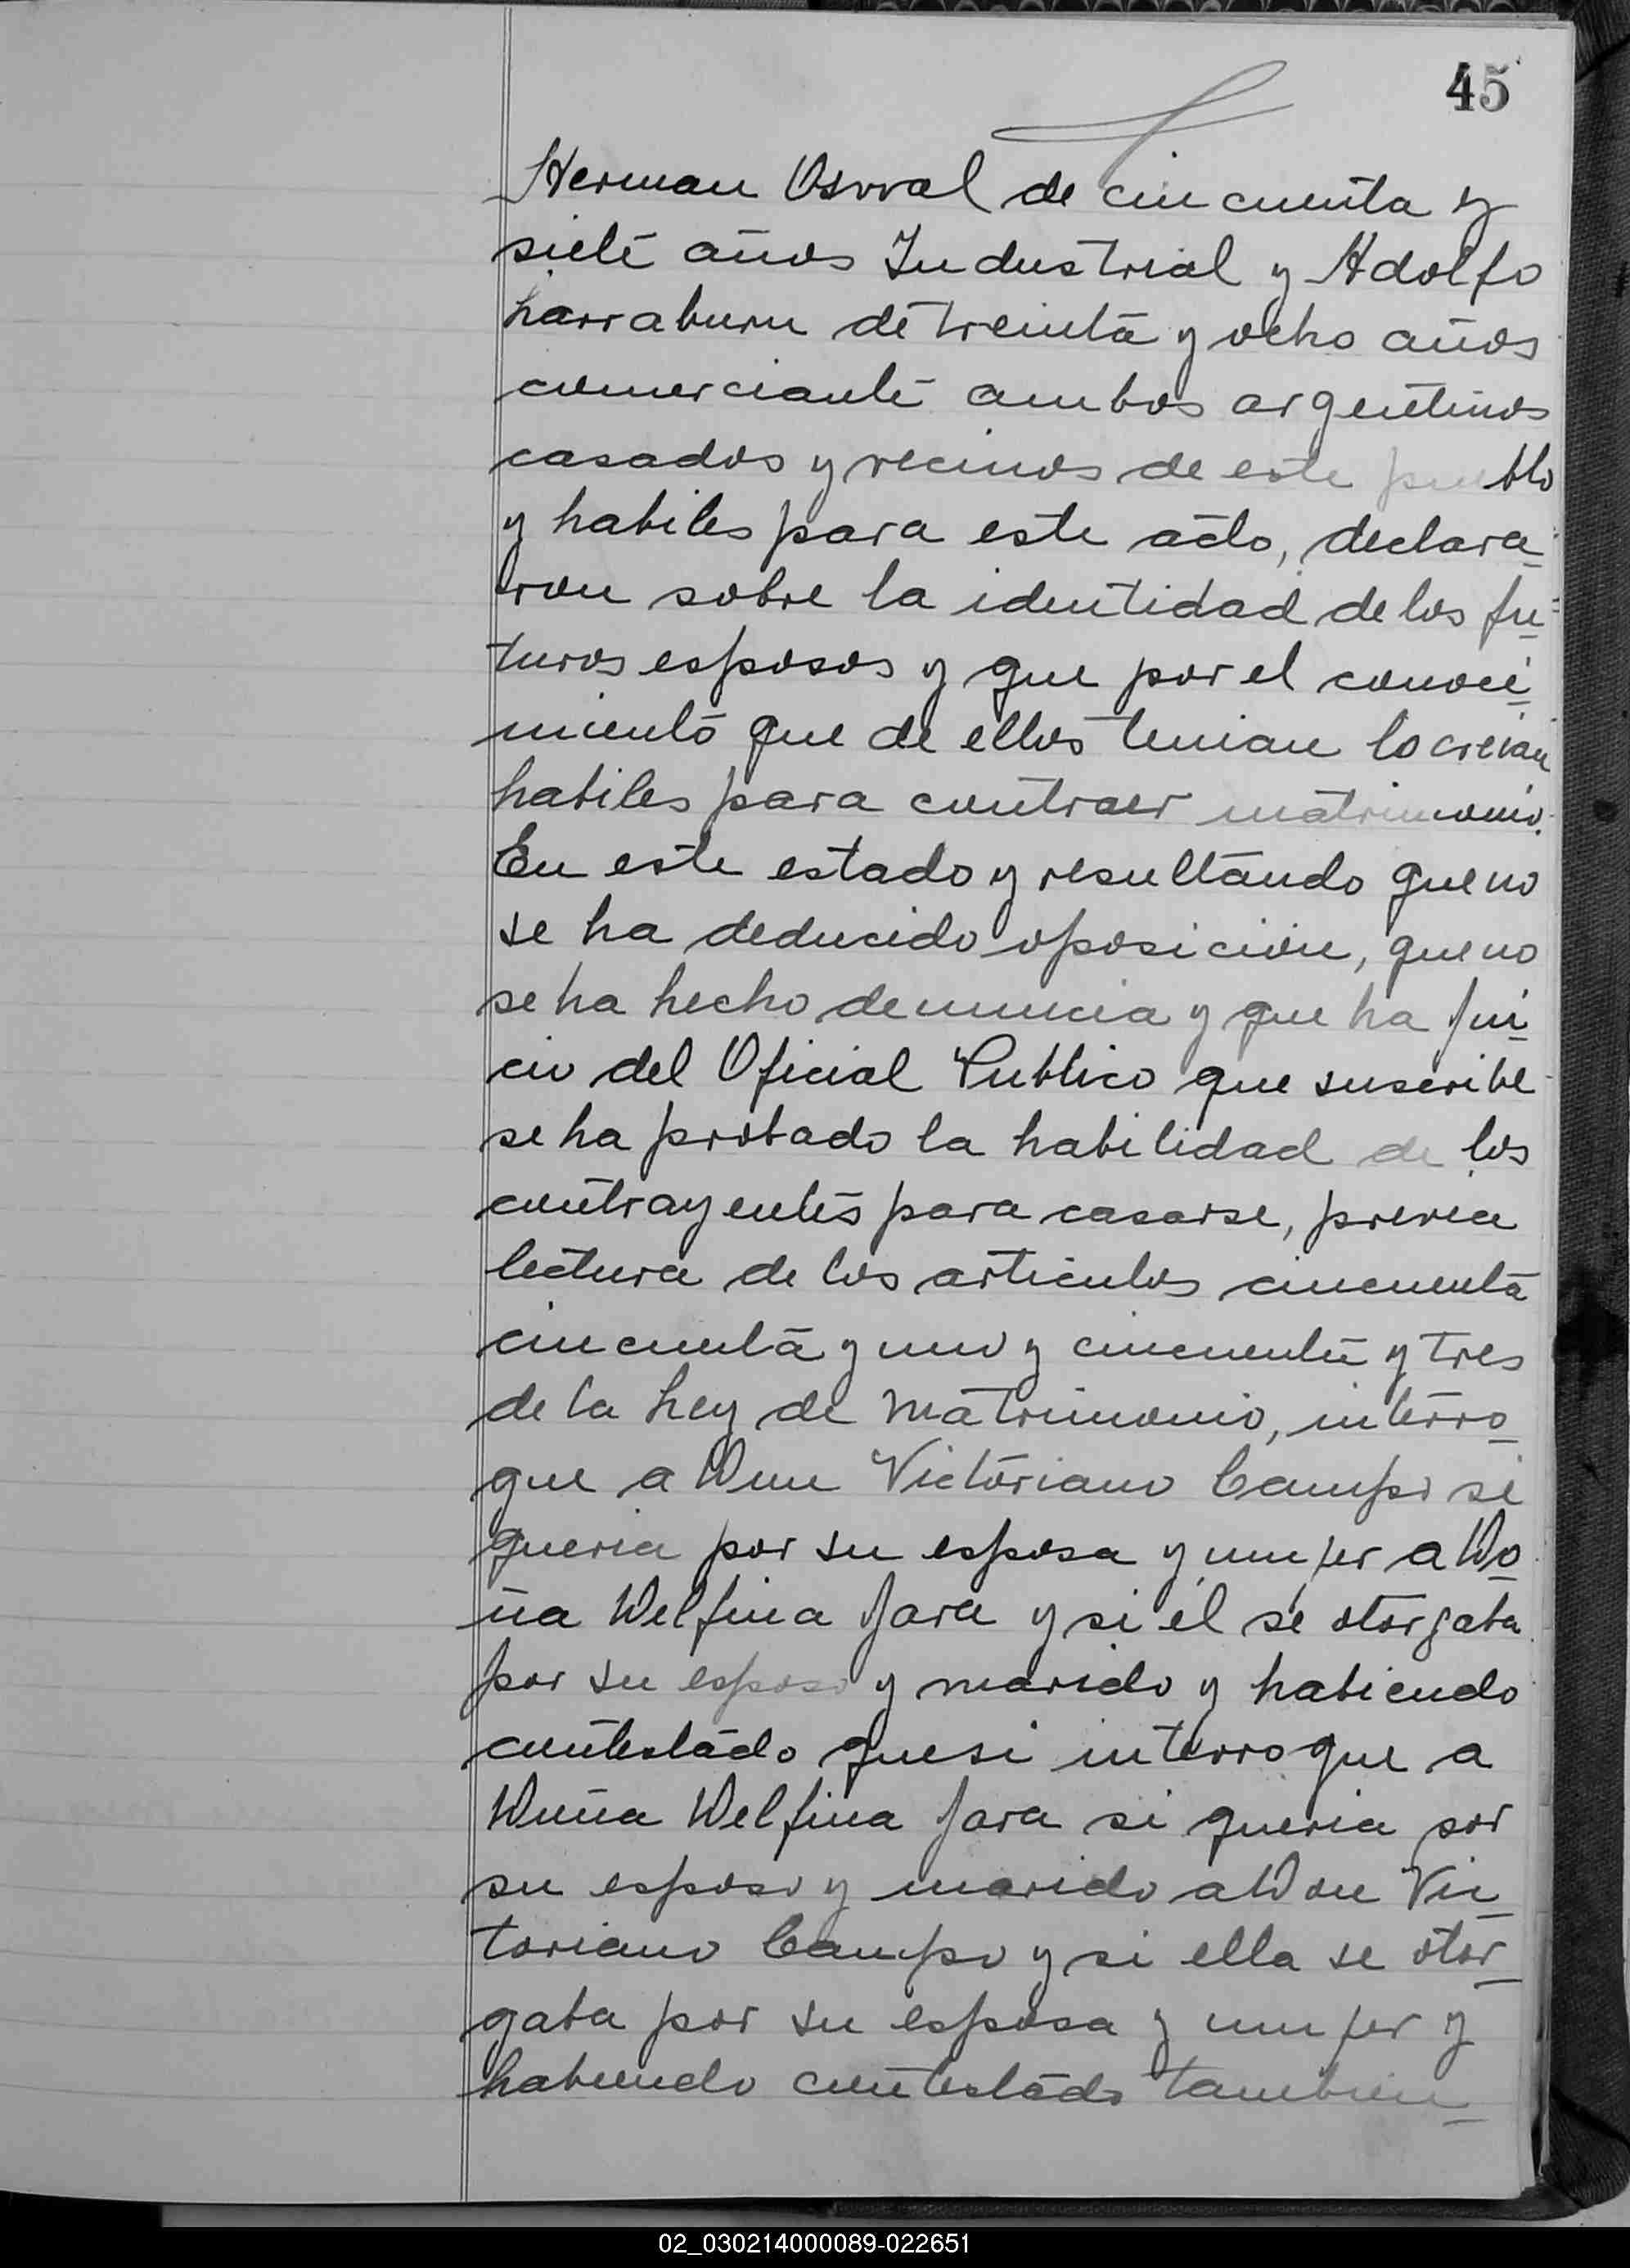 45
Herman Osvval de cincuenta y
siete años Industrial y Adolfo
Larraburu de treinta y ocho años
comerciante ambos argentinos
casados y vecinos de este pueblo
y habiles para este acto, declara-
ron sobre la identidad de los fu-
turos esposos y que por el conoci-
miento que de ellos tenian lo creian
habiles para contraer matrimonio.
En este estado y resultando que no
se ha deducido oposicion, que no
se ha hecho denuncia y que ha jui-
cio del Oficial Publico que suscribe
se ha probado la habilidad de los
contrayentes para casarse, previa
lectura de los articulos cincuenta
cincuenta y uno y cincuenta y tres
de la Ley de Matrimonio, interro-
gue a Don Victoriano Campo si
queria por su esposa y mujer a Do-
ña Delfina Jara y si él se otorgaba
por su esposo y marido y habiendo
contestado que si interrogue a
Doña Delfina Jara si queria por
su esposo y marido a Don Vic-
toriano Campo y si ella se otor-
gaba por su esposa y mujer y
habiendo contestado tambien
02_030214000089-022651